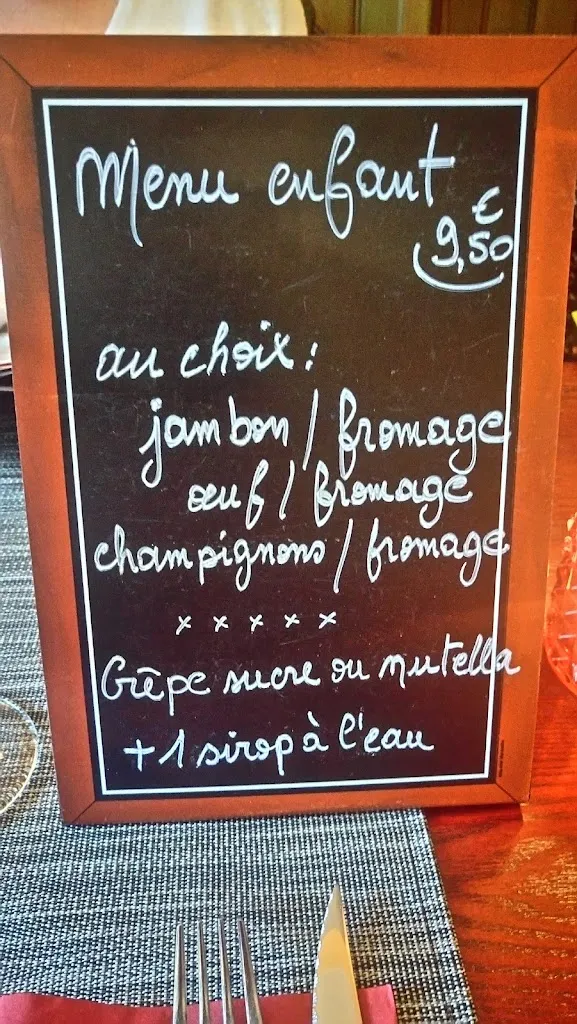 Menu enfant
€
9,50
au choix :
jambon / fromage
œuf / fromage
champignons / fromage
x x x x x
Crêpe sucre ou nutella
+ 1 sirop à l'eau